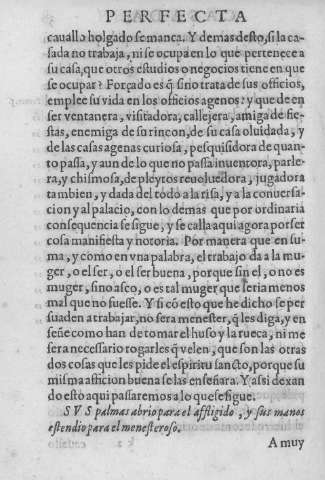 PERFECTA
cauallo holgado se manca. Y demas desto, si la ca-
sada no trabaja, ni se ocupa en lo que pertenece a
su casa, que otros estudios o negocios tiene en que
se ocupar? Forçado es q̃ si no trata de sus officios,
emplee su vida en los officios agenos: y que de en
ser ventanera, visitadora, callejera, amiga de fie-
stas, enemiga de su rincon, de su casa oluidada, y
de las casas agenas curiosa, pesquisidora de quan-
to passa, y aun de lo que no passa inuentora, parle-
ra, y chismosa, de pleytos reboluedora, jugadora
tambien, y dada del todo a la risa, y a la conuersa-
cion y al palacio, con lo demas que por ordinaria
consequencia se sigue, y se calla aqui agora por ser
cosa manifiesta y notoria. Por manera que en su-
ma, y como en vna palabra, el trabajo da a la mu-
ger, o el ser, o el ser buena, porque sin el, o no es
muger, sino asco, o es tal muger que seria menos
mal que no fuesse. Y si cõ esto que he dicho se per
suaden a trabajar, no sera menester, q̃ les diga, y en
señe como han de tomar el huso y la rueca, ni me
sera necessario rogarles q̃ velen, que son las otras
dos cosas que les pide el espiritu sancto, porque su
misma afficion buena se las enseñara. Y assi dexan
do esto aqui passaremos a lo que se sigue.
SVS palmas abrio para el affligido, y sus manos
estendio para el menesteroso.
A muy